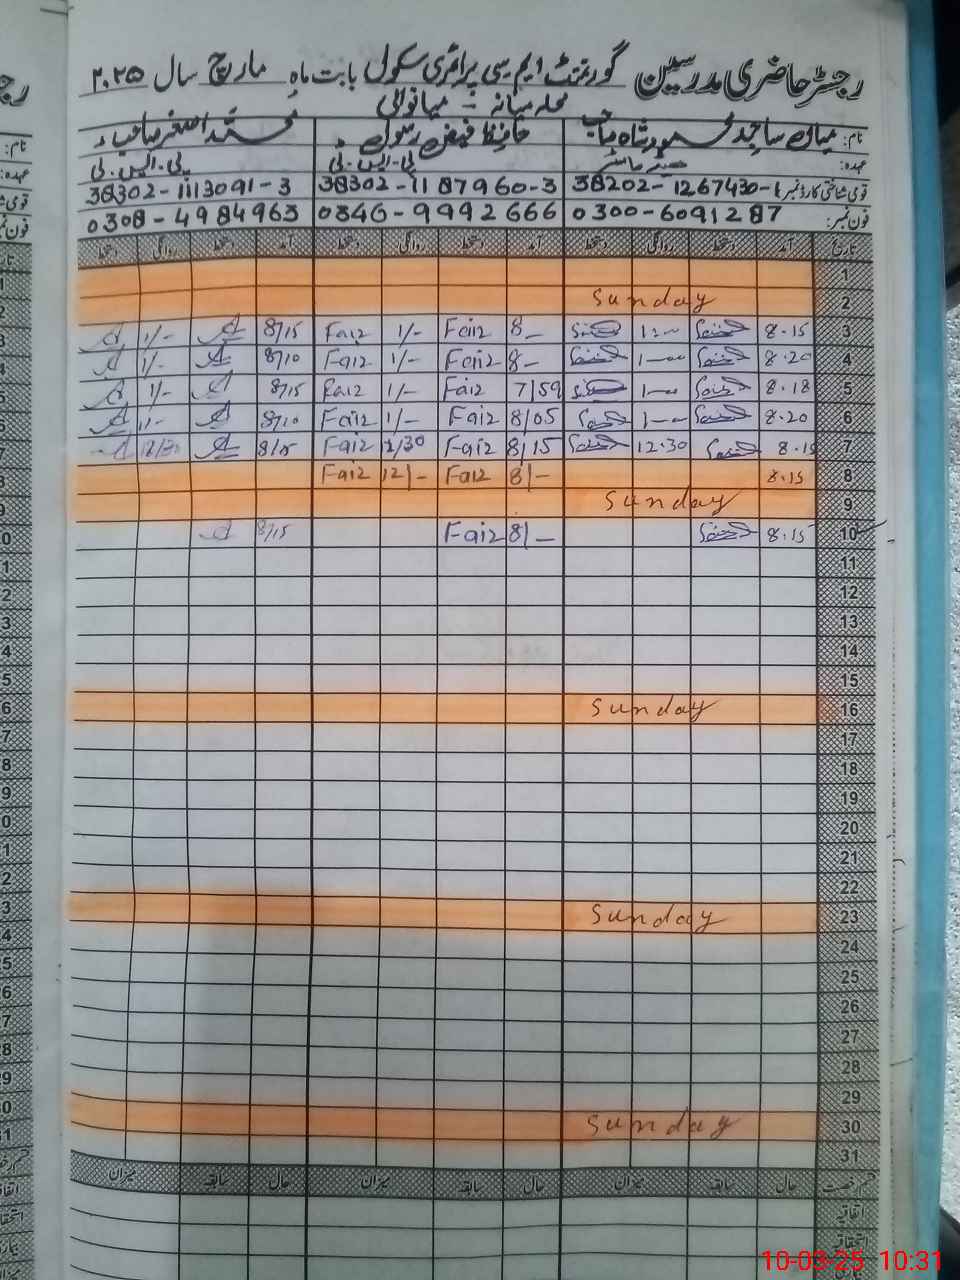 رجسٹر حاضری مدرسین گورنمنٹ ایم سی پرائمری سکول بابت ماہ مارچ سال ۲۰۲۵
محلہ میانہ - میانوالی
نام: میاں ساجد محمود شاہ صاحب حافظ فیض رسول محمد اصغر صاحب
عہدہ: ہیڈ ماسٹر پی-ایس-ٹی پی-ایس-ٹی
قومی شناختی کارڈ نمبر 38202-1267430-1 38302-1187960-3 38302-1113091-3
فون نمبر: 0300-6091287 0346-9992666 0308-4984963
تاریخ آمد دستخط روانگی دستخط آمد دستخط روانگی دستخط آمد دستخط روانگی دستخط
1
Sunday 2
1/- 8/15 Faiz 1/- Faiz 8- 8.15 3
1/- 8/10 Faiz 1/- Faiz 8- 8.20 4
1/- 8/15 Faiz 1/- Faiz 7/59 8.18 5
1/- 8/10 Faiz 1/- Faiz 8/05 8.20 6
12/30 8/15 Faiz 12/30 Faiz 8/15 12.30 7
Faiz 12/- Faiz 8/- 8.15 8
Sunday 9
8/15 Faiz 8/- 8.15 10
11
12
13
14
15
Sunday 16
17
18
19
20
21
22
Sunday 23
24
25
26
27
28
29
Sunday 30
31
قسم رخصت حال سابقہ میزان حال سابقہ میزان حال سابقہ میزان
اتفاقیہ
استحقاقیہ
10-03-25 10:31